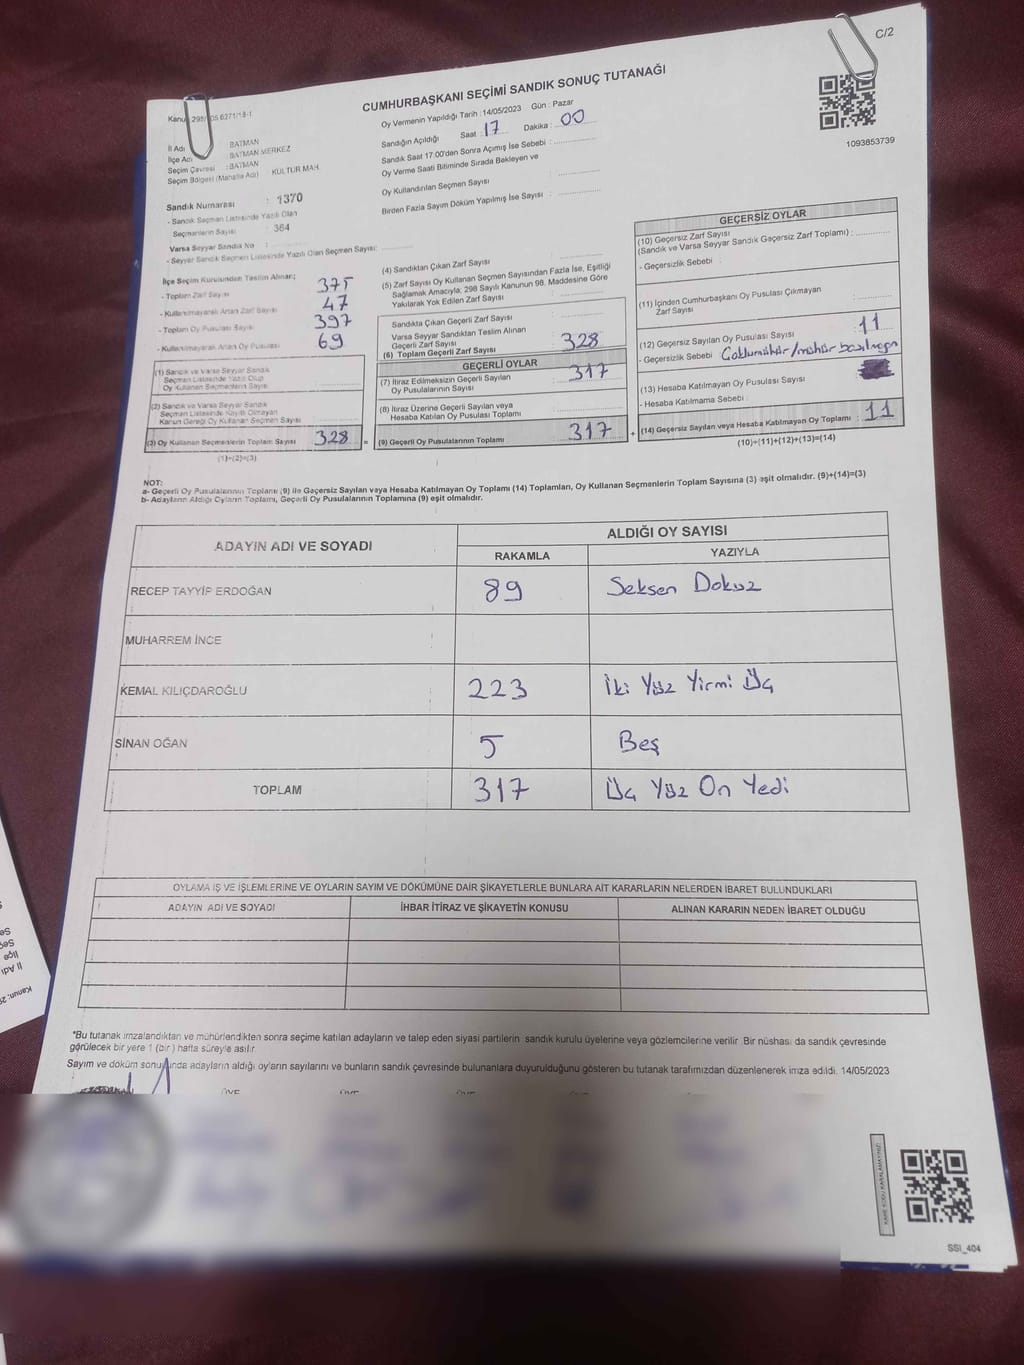 C/2
CUMHURBAŞKANI SEÇİMİ SANDIK SONUÇ TUTANAĞI
Oy Vermenin Yapıldığı Tarih : 14/05/2023 Gün : Pazar
Sandığın Açıldığı Saat 17 Dakika : 00
Sandık Saat 17.00'den Sonra Açımış İse Sebebi :
Oy Verme Saati Bitiminde Sırada Bekleyen ve
Oy Kullandırılan Seçmen Sayısı
Birden Fazla Sayım Döküm Yapılmış İse Sayısı :
1093853739
İl Adı BATMAN
İlçe Adı BATMAN MERKEZ
Seçim Çevresi : BATMAN
Seçim Bölgesi (Mahalle Adı) KULTUR MAH.
Sandık Numarası : 1370
- Sandık Seçmen Listesinde Yazılı Olan
Seçmenlerin Sayısı : 364
Varsa Seyyar Sandık No :
- Seyyar Sandık Seçmen Listesinde Yazılı Olan Seçmen Sayısı:
İlçe Seçim Kurulundan Teslim Alınan;
- Toplam Zarf Sayısı 375
- Kullanılmayarak Artan Zarf Sayısı 47
- Toplam Oy Pusulası Sayısı 397
- Kullanılmayarak Artan Oy Pusulası 69
(1) Sandık ve Varsa Seyyar Sandık
Seçmen Listesinde Yazılı Olup
Oy Kullanan Seçmenlerin Sayısı
(2) Sandık ve Varsa Seyyar Sandık
Seçmen Listesinde Kayıtlı Olmayan
Kanun Gereği Oy Kullanan Seçmen Sayısı
(3) Oy Kullanan Seçmenlerin Toplam Sayısı 328 =
(1)+(2)=(3)
(4) Sandıktan Çıkan Zarf Sayısı
(5) Zarf Sayısı Oy Kullanan Seçmen Sayısından Fazla İse, Eşitliği
Sağlamak Amacıyla, 298 Sayılı Kanunun 98. Maddesine Göre
Yakılarak Yok Edilen Zarf Sayısı
Sandıkta Çıkan Geçerli Zarf Sayısı
Varsa Seyyar Sandıktan Teslim Alınan
Geçerli Zarf Sayısı
(6) Toplam Geçerli Zarf Sayısı 328
GEÇERLİ OYLAR
(7) İtiraz Edilmeksizin Geçerli Sayılan
Oy Pusulalarının Sayısı 317
(8) İtiraz Üzerine Geçerli Sayılan veya
Hesaba Katılan Oy Pusulası Toplamı
(9) Geçerli Oy Pusulalarının Toplamı 317 +
GEÇERSİZ OYLAR
(10) Geçersiz Zarf Sayısı
(Sandık ve Varsa Seyyar Sandık Geçersiz Zarf Toplamı) :
- Geçersizlik Sebebi :
(11) İçinden Cumhurbaşkanı Oy Pusulası Çıkmayan
Zarf Sayısı
(12) Geçersiz Sayılan Oy Pusulası Sayısı 11
- Geçersizlik Sebebi
(13) Hesaba Katılmayan Oy Pusulası Sayısı
- Hesaba Katılmama Sebebi :
(14) Geçersiz Sayılan veya Hesaba Katılmayan Oy Toplamı : 11
(10)+(11)+(12)+(13)=(14)
NOT:
a- Geçerli Oy Pusulalarının Toplamı (9) ile Geçersiz Sayılan veya Hesaba Katılmayan Oy Toplamı (14) Toplamları, Oy Kullanan Seçmenlerin Toplam Sayısına (3) eşit olmalıdır. (9)+(14)=(3)
b- Adayların Aldığı Oyların Toplamı, Geçerli Oy Pusulalarının Toplamına (9) eşit olmalıdır.
ADAYIN ADI VE SOYADI ALDIĞI OY SAYISI
RAKAMLA YAZIYLA
RECEP TAYYİP ERDOĞAN 89 Seksen Dokuz
MUHARREM İNCE
KEMAL KILIÇDAROĞLU 223 İki Yüz Yirmi Üç
SİNAN OĞAN 5 Beş
TOPLAM 317 Üç Yüz On Yedi
OYLAMA İŞ VE İŞLEMLERİNE VE OYLARIN SAYIM VE DÖKÜMÜNE DAİR ŞİKAYETLERLE BUNLARA AİT KARARLARIN NELERDEN İBARET BULUNDUKLARI
ADAYIN ADI VE SOYADI İHBAR İTİRAZ VE ŞİKAYETİN KONUSU ALINAN KARARIN NEDEN İBARET OLDUĞU
*Bu tutanak imzalandıktan ve mühürlendikten sonra seçime katılan adayların ve talep eden siyasi partilerin sandık kurulu üyelerine veya gözlemcilerine verilir. Bir nüshası da sandık çevresinde
görülecek bir yere 1 (bir) hafta süreyle asılır.
Sayım ve döküm sonucunda adayların aldığı oyların sayılarını ve bunların sandık çevresinde bulunanlara duyurulduğunu gösteren bu tutanak tarafımızdan düzenlenerek imza edildi. 14/05/2023
SSI_404